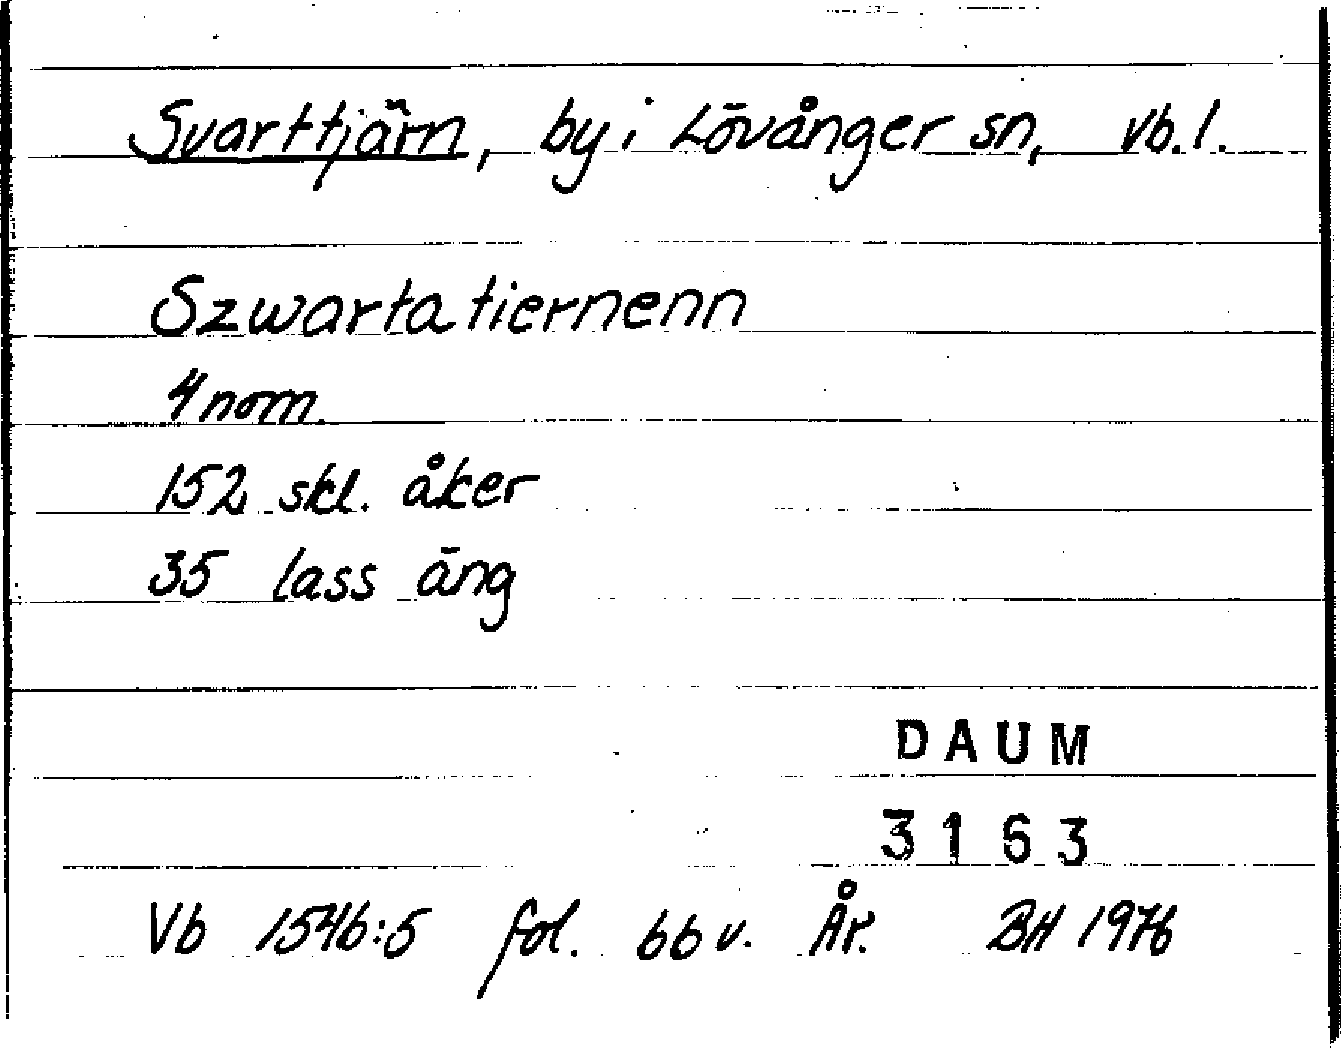 Svarttjärn, by i Lövånger sn, Vb. l.
Szwarta tiernenn
4 nom.
152 skl. åker
35 lass äng
DAUM
3163
Vb 1546:5 fol. 66 v. År. BH 1976